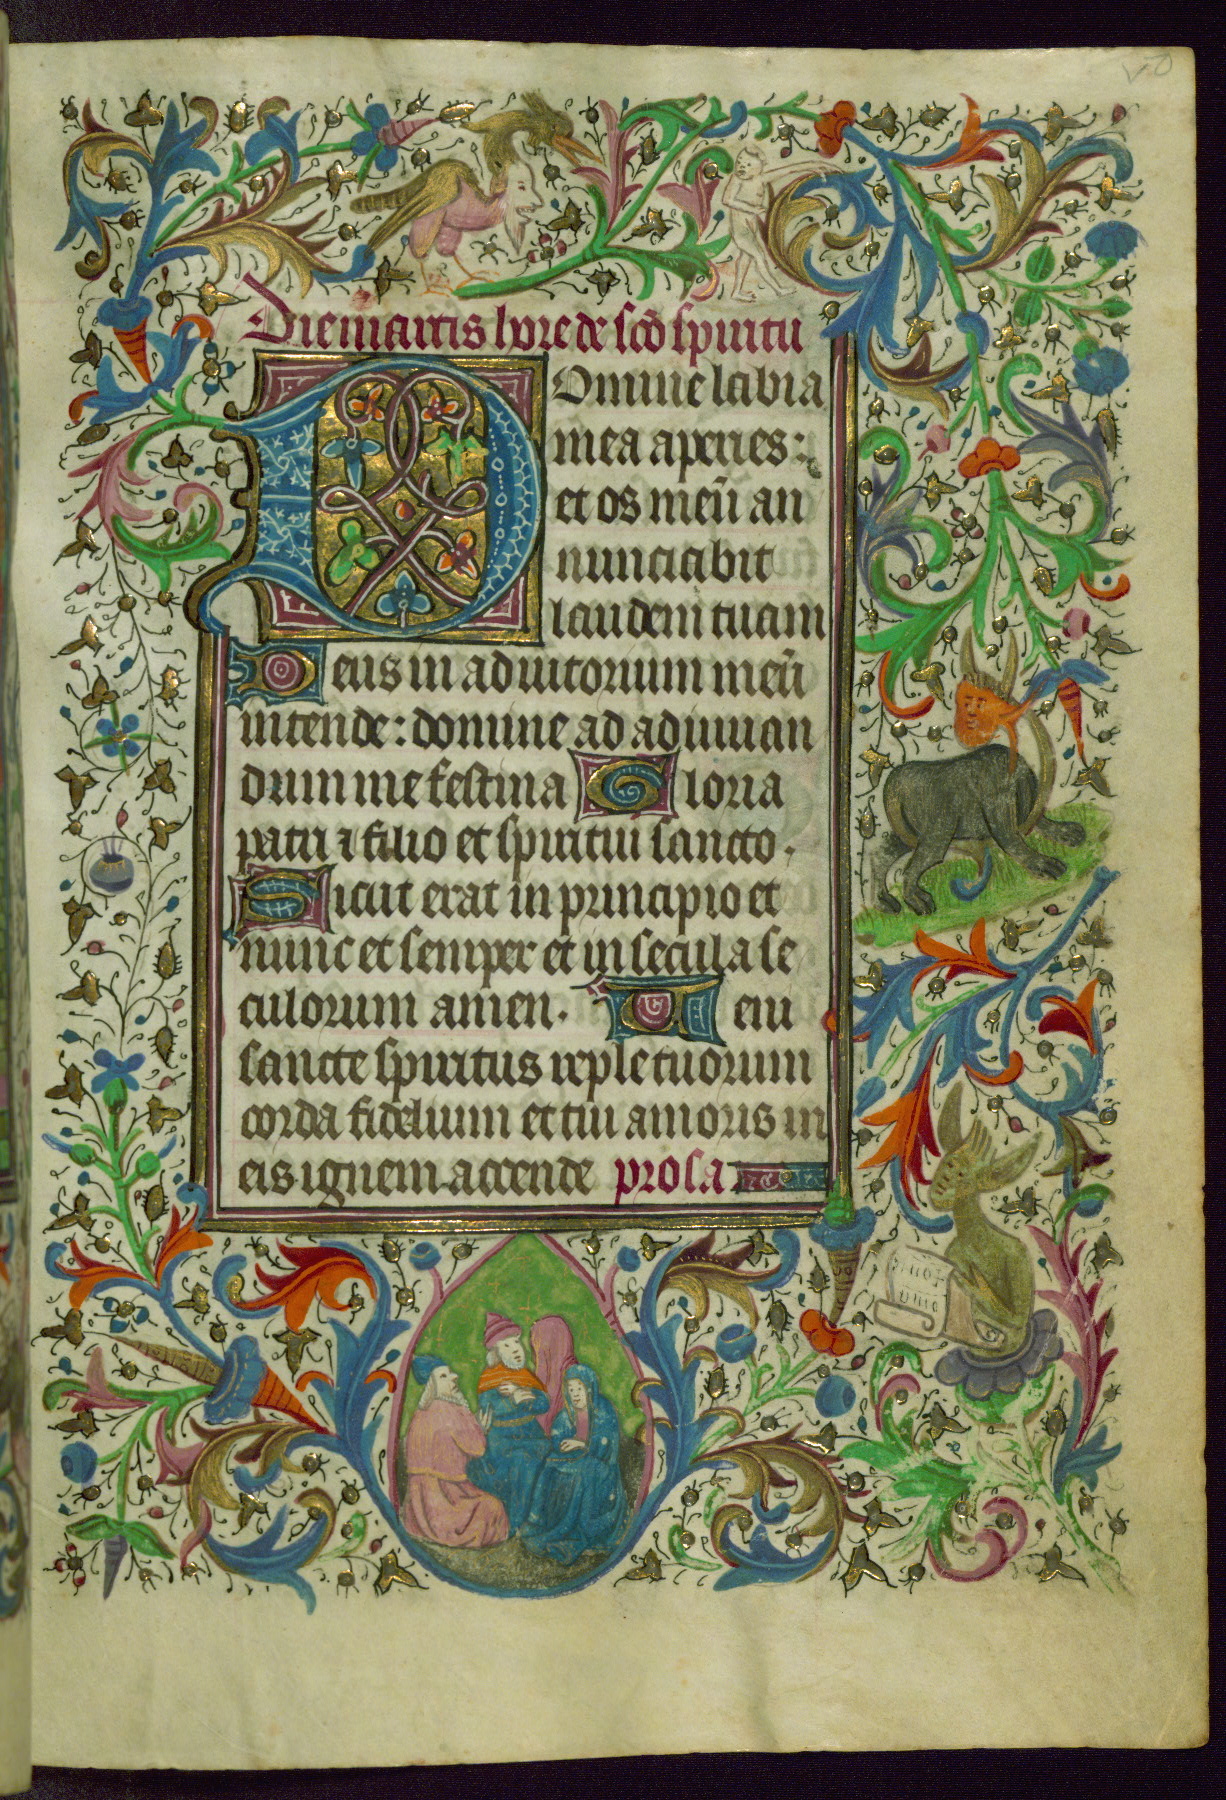 Die martis hore de scō spiritu
Domine labia
mea aperies:
et os meū an
nunciabit
laudem tuam
Deus in adiutorium meū
intende: domine ad adiuuan
dum me festina Gloria
patri ⁊ filio et spiritui sancto.
Sicut erat in principio et
nunc et semper et in secula se
culorum amen. Ueni
sancte spiritus reple tuorum
corda fidelium et tui amoris in
eis ignem accende prosa